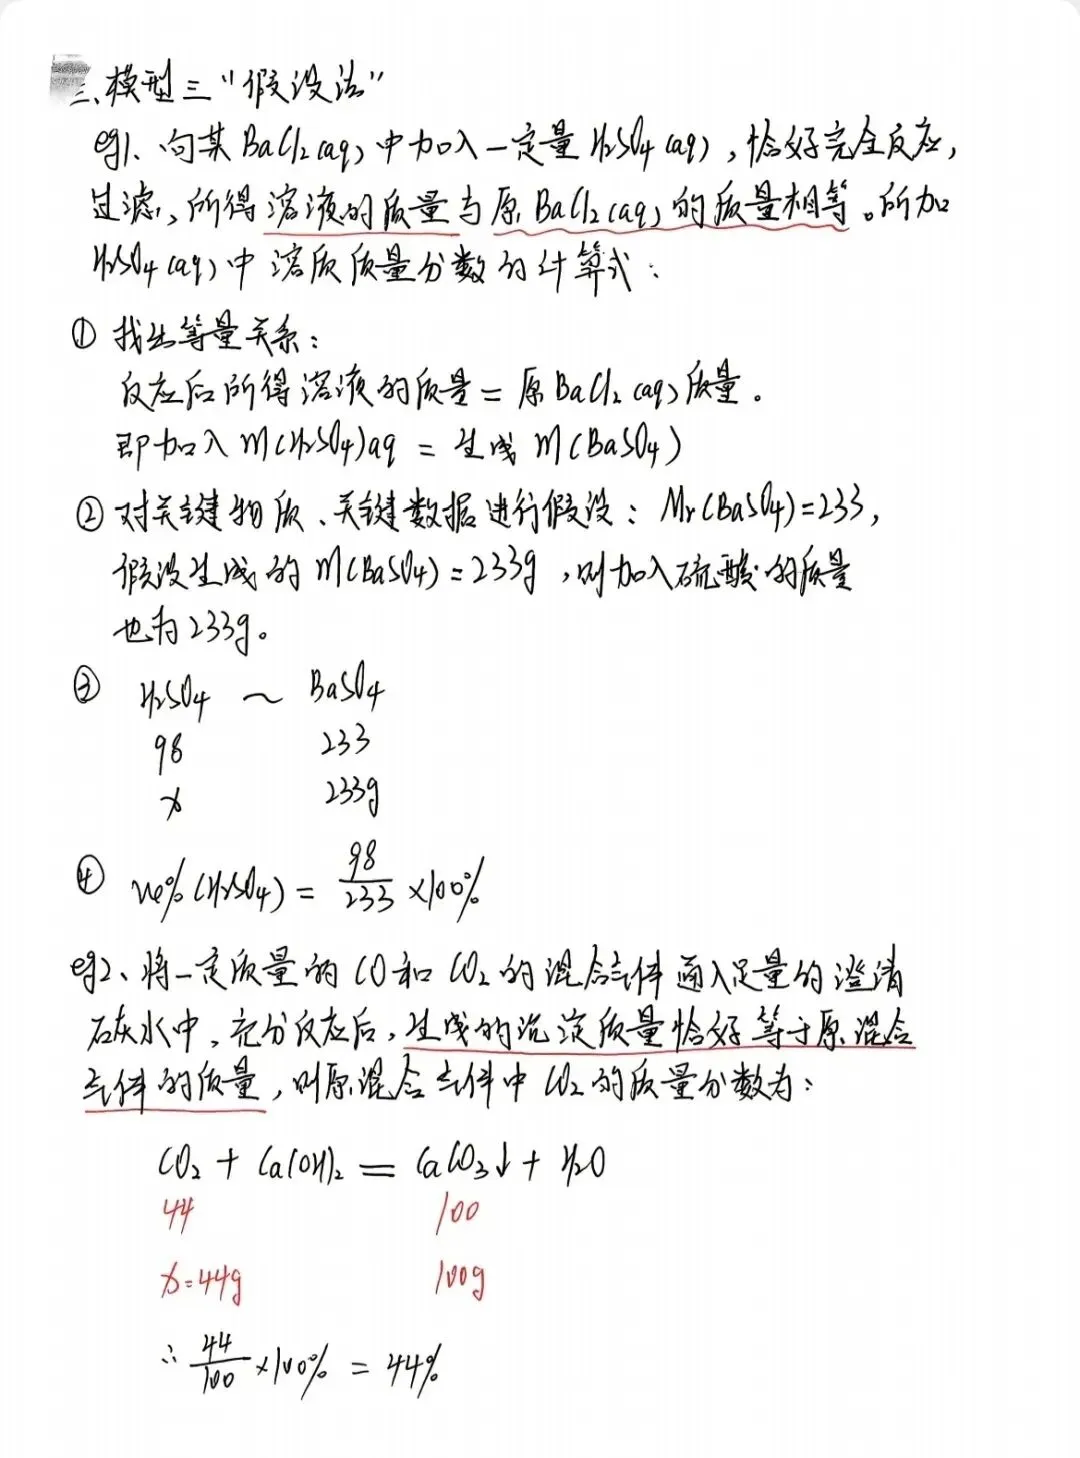 三、模型三“假设法”
eg1、向某BaCl₂(aq)中加入一定量H₂SO₄(aq),恰好完全反应,
过滤,所得溶液的质量与原BaCl₂(aq)的质量相等。所加
H₂SO₄(aq)中溶质质量分数的计算式:
① 找出等量关系:
反应后所得溶液的质量=原BaCl₂(aq)质量。
即加入m(H₂SO₄)aq = 生成m(BaSO₄)
② 对关键物质、关键数据进行假设:Mr(BaSO₄)=233,
假设生成的m(BaSO₄)=233g,则加入硫酸的质量
也为233g。
③ H₂SO₄ ~ BaSO₄
98 233
x 233g
④ w%(H₂SO₄) = 98/233 ×100%
eg2、将一定质量的CO和CO₂的混合气体通入足量的澄清
石灰水中,充分反应后,生成的沉淀质量恰好等于原混合
气体的质量,则原混合气体中CO₂的质量分数为:
CO₂ + Ca(OH)₂ = CaCO₃↓ + H₂O
44 100
x=44g 100g
∴ 44/100 ×100% = 44%